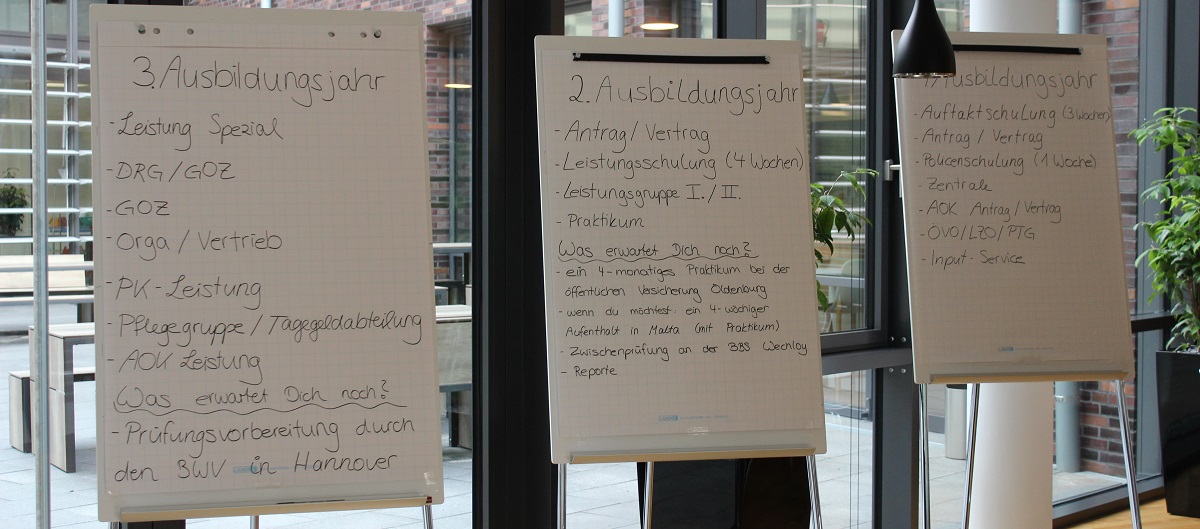 3. Ausbildungsjahr
- Leistung Spezial
- DRG/GOZ
- GOZ
- Orga / Vertrieb
- PK-Leistung
- Pflegegruppe / Tagegeldabteilung
- AOK Leistung
Was erwartet Dich noch?
- Prüfungsvorbereitung durch
den BWV in Hannover
2. Ausbildungsjahr
- Antrag / Vertrag
- Leistungsschulung (4 Wochen)
- Leistungsgruppe I. / II.
- Praktikum
Was erwartet Dich noch?
- ein 4-monatiges Praktikum bei der
öffentlichen Versicherung Oldenburg
- wenn du möchtest: ein 4-wöchiger
Aufenthalt in Malta (mit Praktikum)
- Zwischenprüfung an der BBS Wechloy
- Reporte
Ausbildungsjahr
- Auftaktschulung (3 Wochen)
- Antrag / Vertrag
- Policenschulung (1 Woche)
- Zentrale
- AOK Antrag / Vertrag
- ÖVO/LZO/PTG
- Input-Service